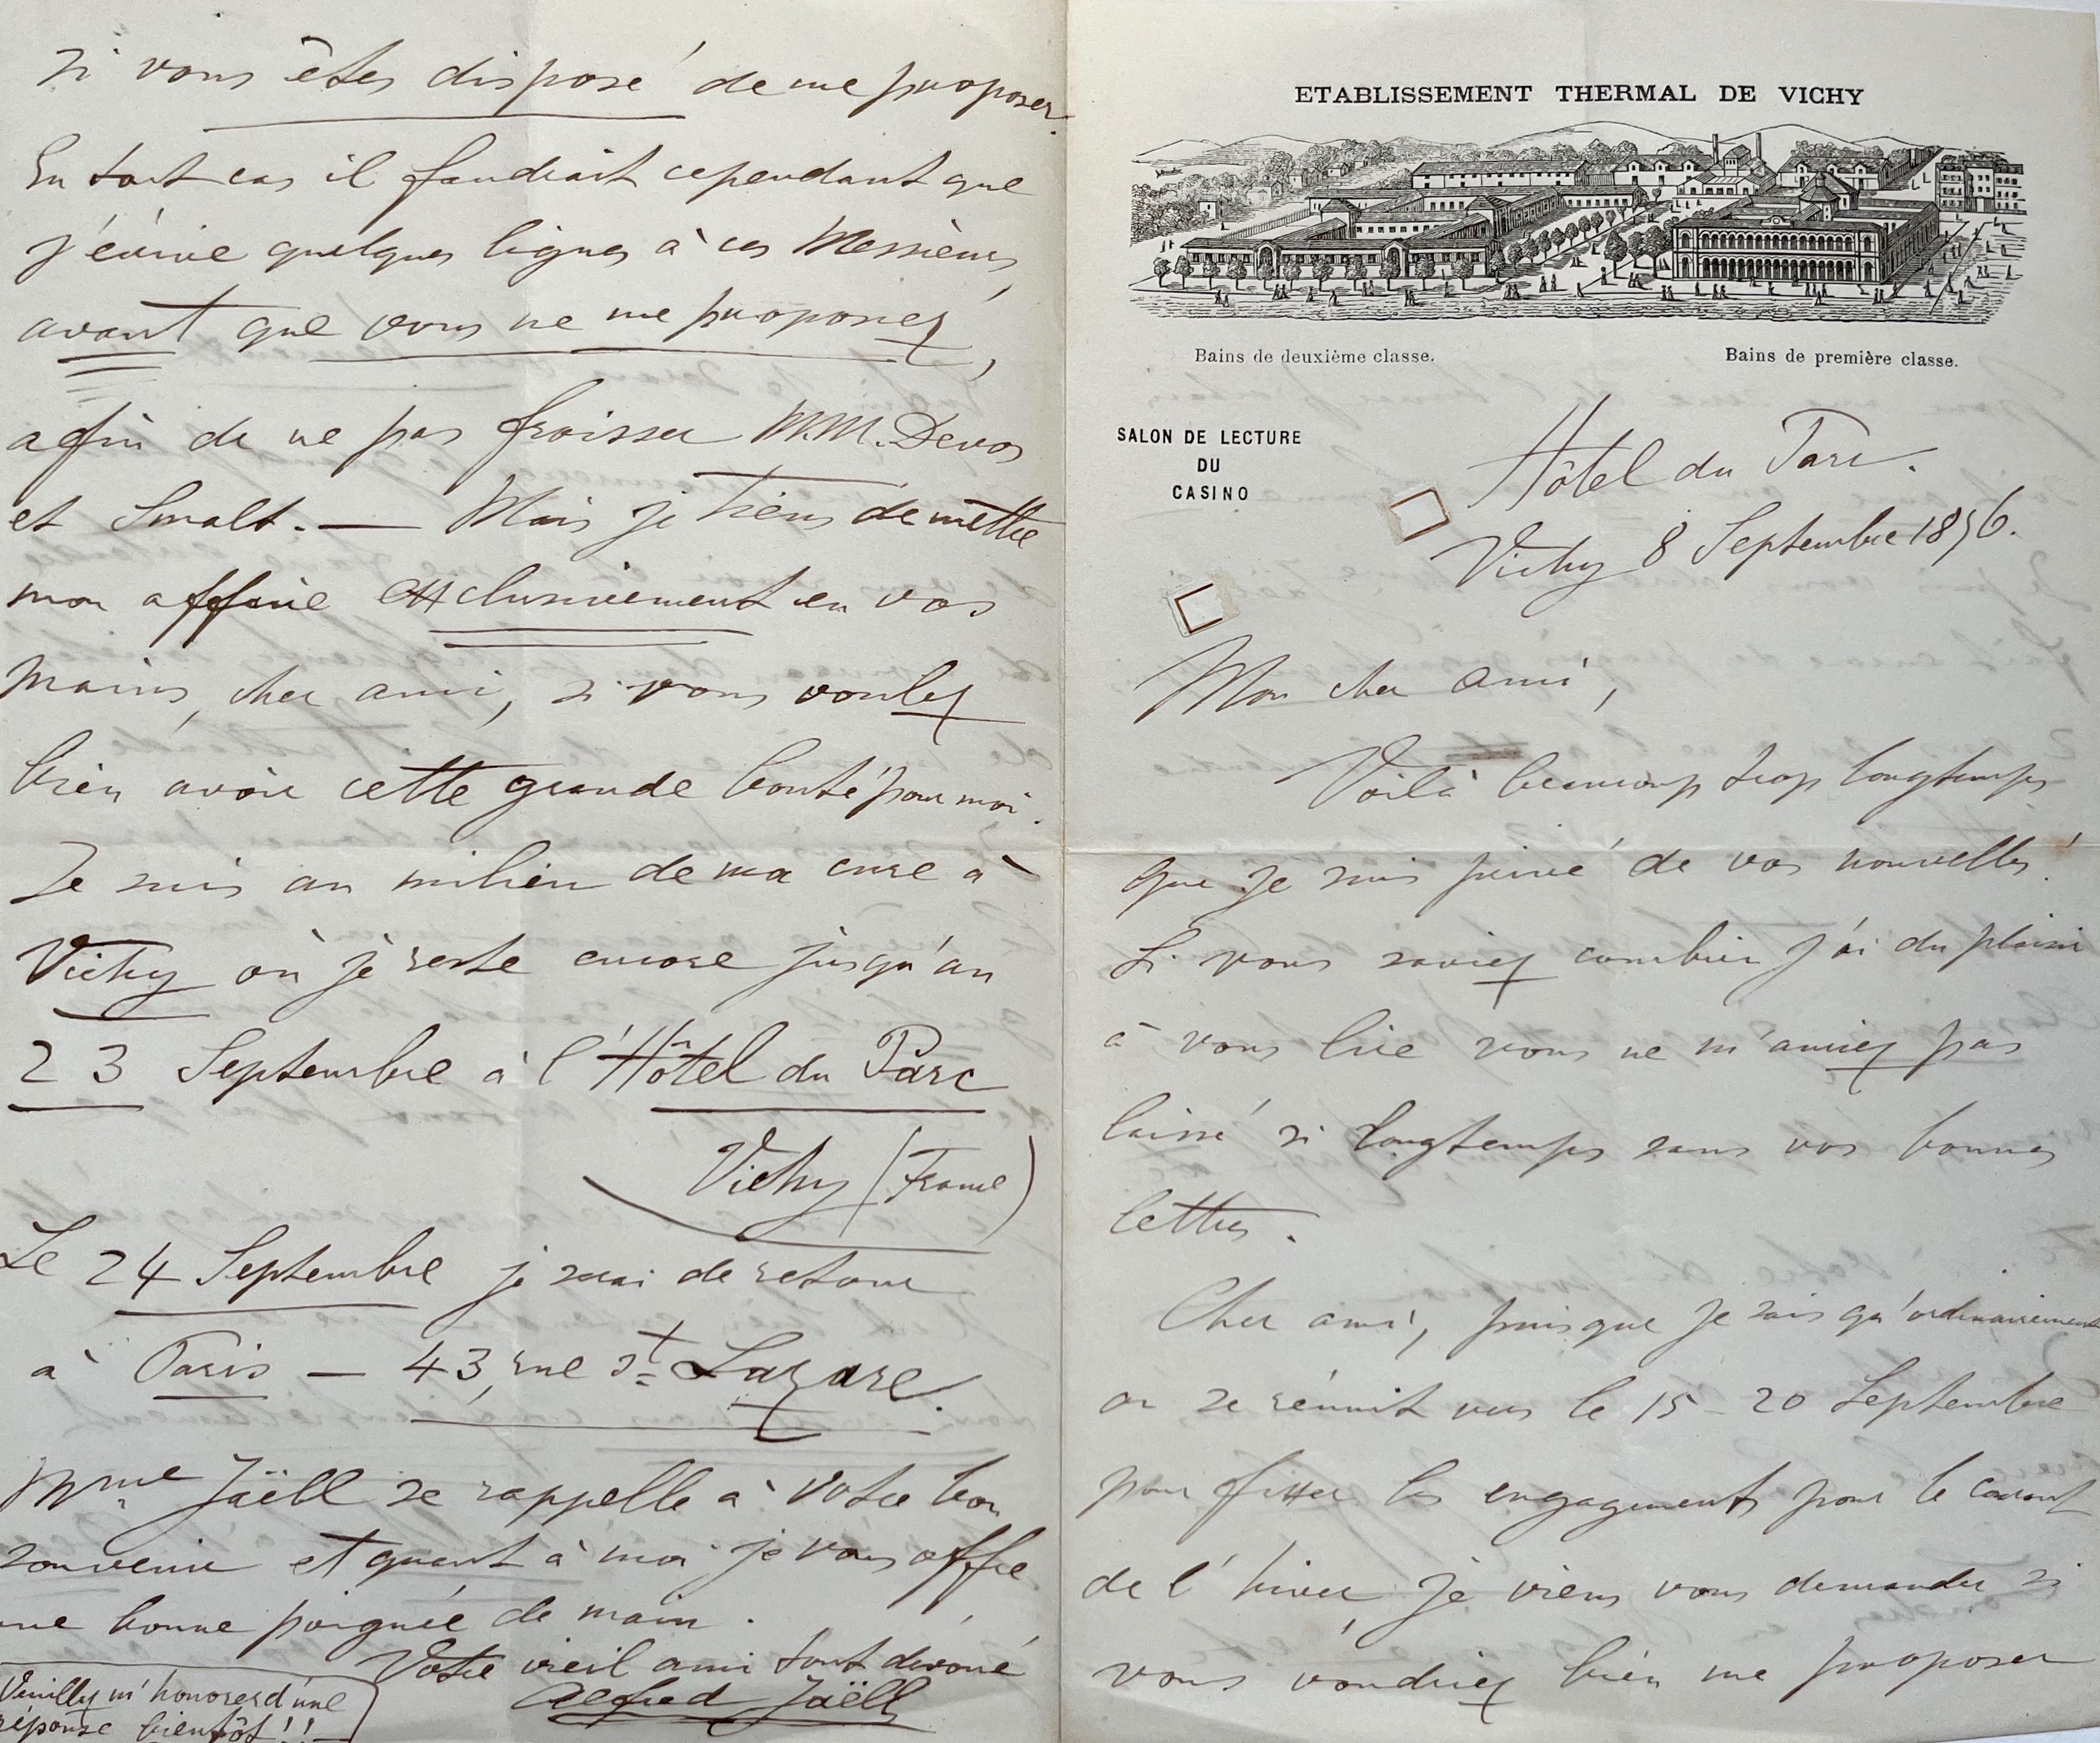 ETABLISSEMENT THERMAL DE VICHY
Bains de deuxième classe.
Bains de première classe.
SALON DE LECTURE
DU
CASINO
Hôtel du Parc.
Vichy 8 Septembre 1876.
Mon cher ami,
Voilà beaucoup trop longtemps
que je suis privé de vos nouvelles!
Si vous saviez combien j'ai du plaisir
à vous lire vous ne m'auriez pas
laissé si longtemps sans vos bonnes
lettres.
Cher ami, puisque je sais qu'ordinairement
on se réunit vers le 15-20 Septembre
pour fixer les engagements pour le courant
de l'hiver, je viens vous demander si
vous voudriez bien me proposer
si vous êtes disposé de me proposer.
En tout cas il faudrait cependant que
j'écrive quelques lignes à ces Messieurs,
avant que vous ne me proposiez,
afin de ne pas froisser M.M. Devos
et Smalt. — Mais je tiens de mettre
mon affaire exclusivement en vos
mains, cher ami, si vous voulez
bien avoir cette grande bonté pour moi.
Je suis au milieu de ma cure à
Vichy où je reste encore jusqu'au
23 Septembre à l'Hôtel du Parc
Vichy (France)
Le 24 Septembre je serai de retour
à Paris — 43, rue St Lazare.
Mme Jaëll se rappelle à votre bon
souvenir et quant à moi je vous offre
une bonne poignée de main.
Votre vieil ami tout dévoué
Alfred Jaëll
Veuillez m'honorer d'une
réponse bientôt!!